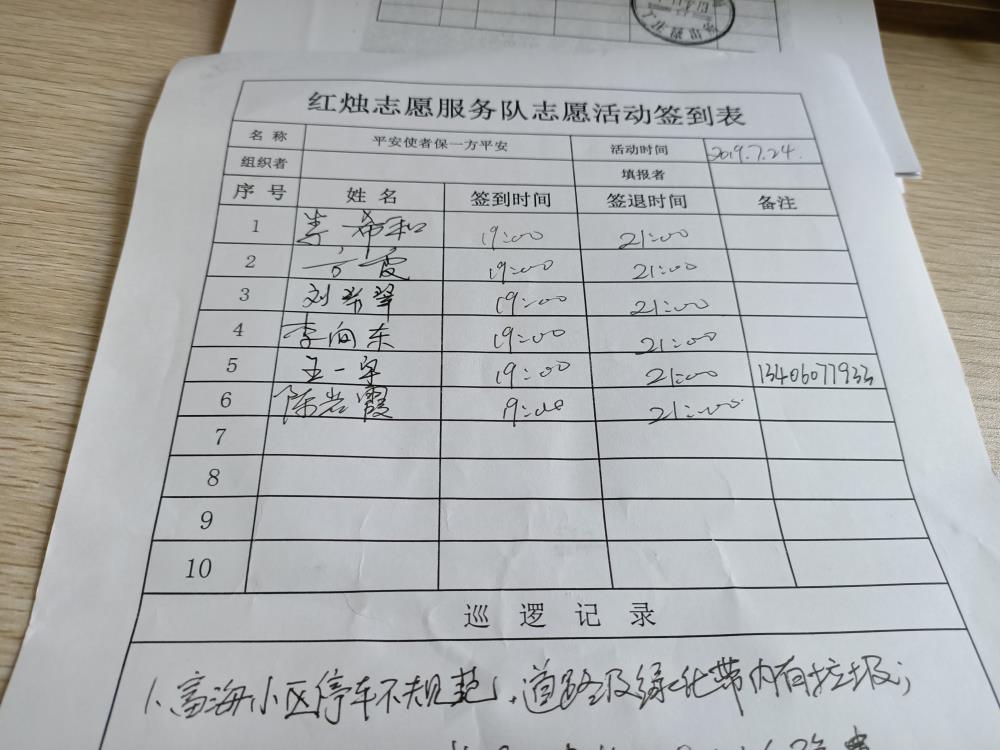 红烛志愿服务队志愿活动签到表
名 称 平安使者保一方平安 活动时间 2019.7.24.
组织者 填报者
序 号 姓 名 签到时间 签退时间 备注
1 李希和 19:00 21:00
2 方霞 19:00 21:00
3 刘希翠 19:00 21:00
4 李向东 19:00 21:00
5 王一宇 19:00 21:00 13406077933
6 陈岩霞 19:00 21:00
7
8
9
10
巡 逻 记 录
1、富海小区停车不规范，道路及绿化带内有垃圾；